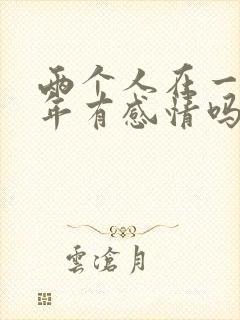 两个人在一
年有感情吗
雲滄月